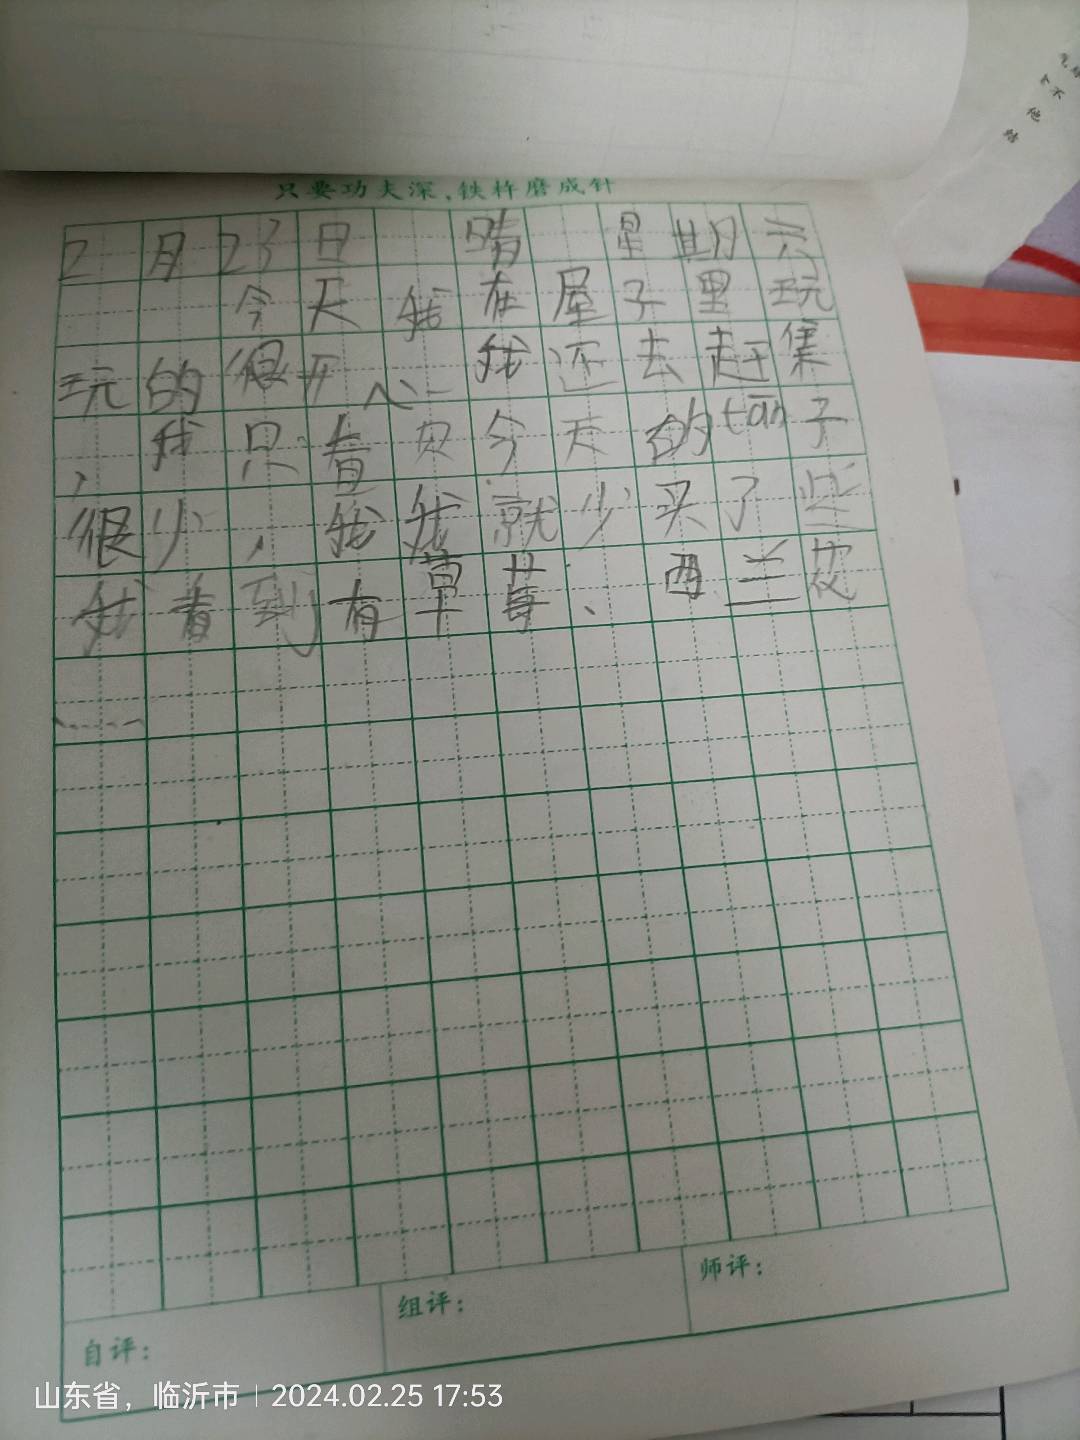 只要功夫深,铁杵磨成针
2月23日 晴 星期六
今天我在屋子里玩
玩的很开心我还去赶集
,我只看见今天的tān子
很少,我我就少买了些
我看到有草莓、西兰花
……
自评:
组评:
师评:
山东省，临沂市 | 2024.02.25 17:53